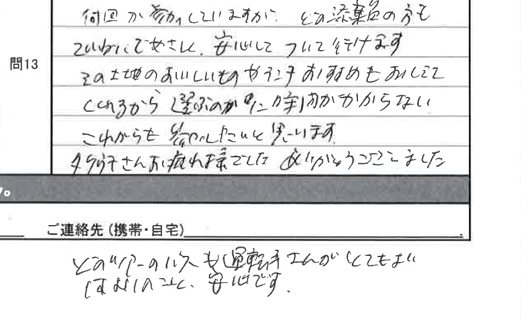 何回か参加していますが、どの添乗員の方も
ていねいでやさしく、安心してついて行けます
その土地のおいしいものやランチおすすめもおしえて
くれるから選ぶのに時間がかからない
問13
これからも参加したいと思います。
さんお疲れ様でした ありがとうございました
ご連絡先(携帯・自宅)
どのツアーのバスも運転手さんがとても
安心です。